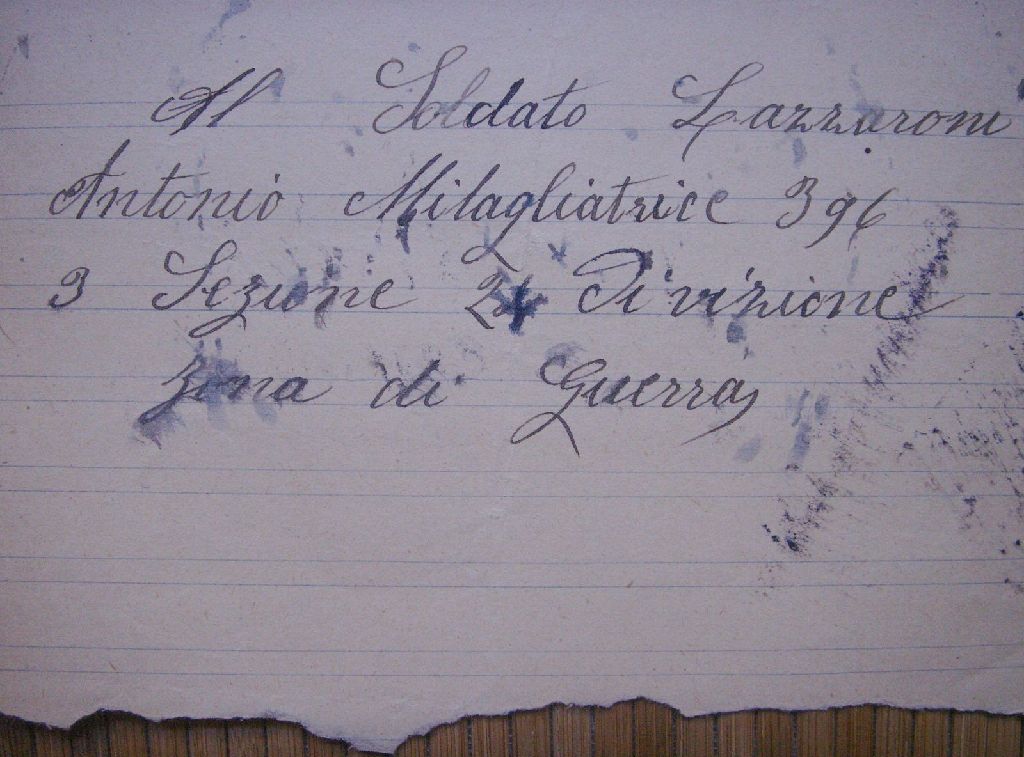 Al Soldato Lazzaroni
Antonio Mitagliatrice 396
3 Sezione 24 Divizione
Zona di Guerra